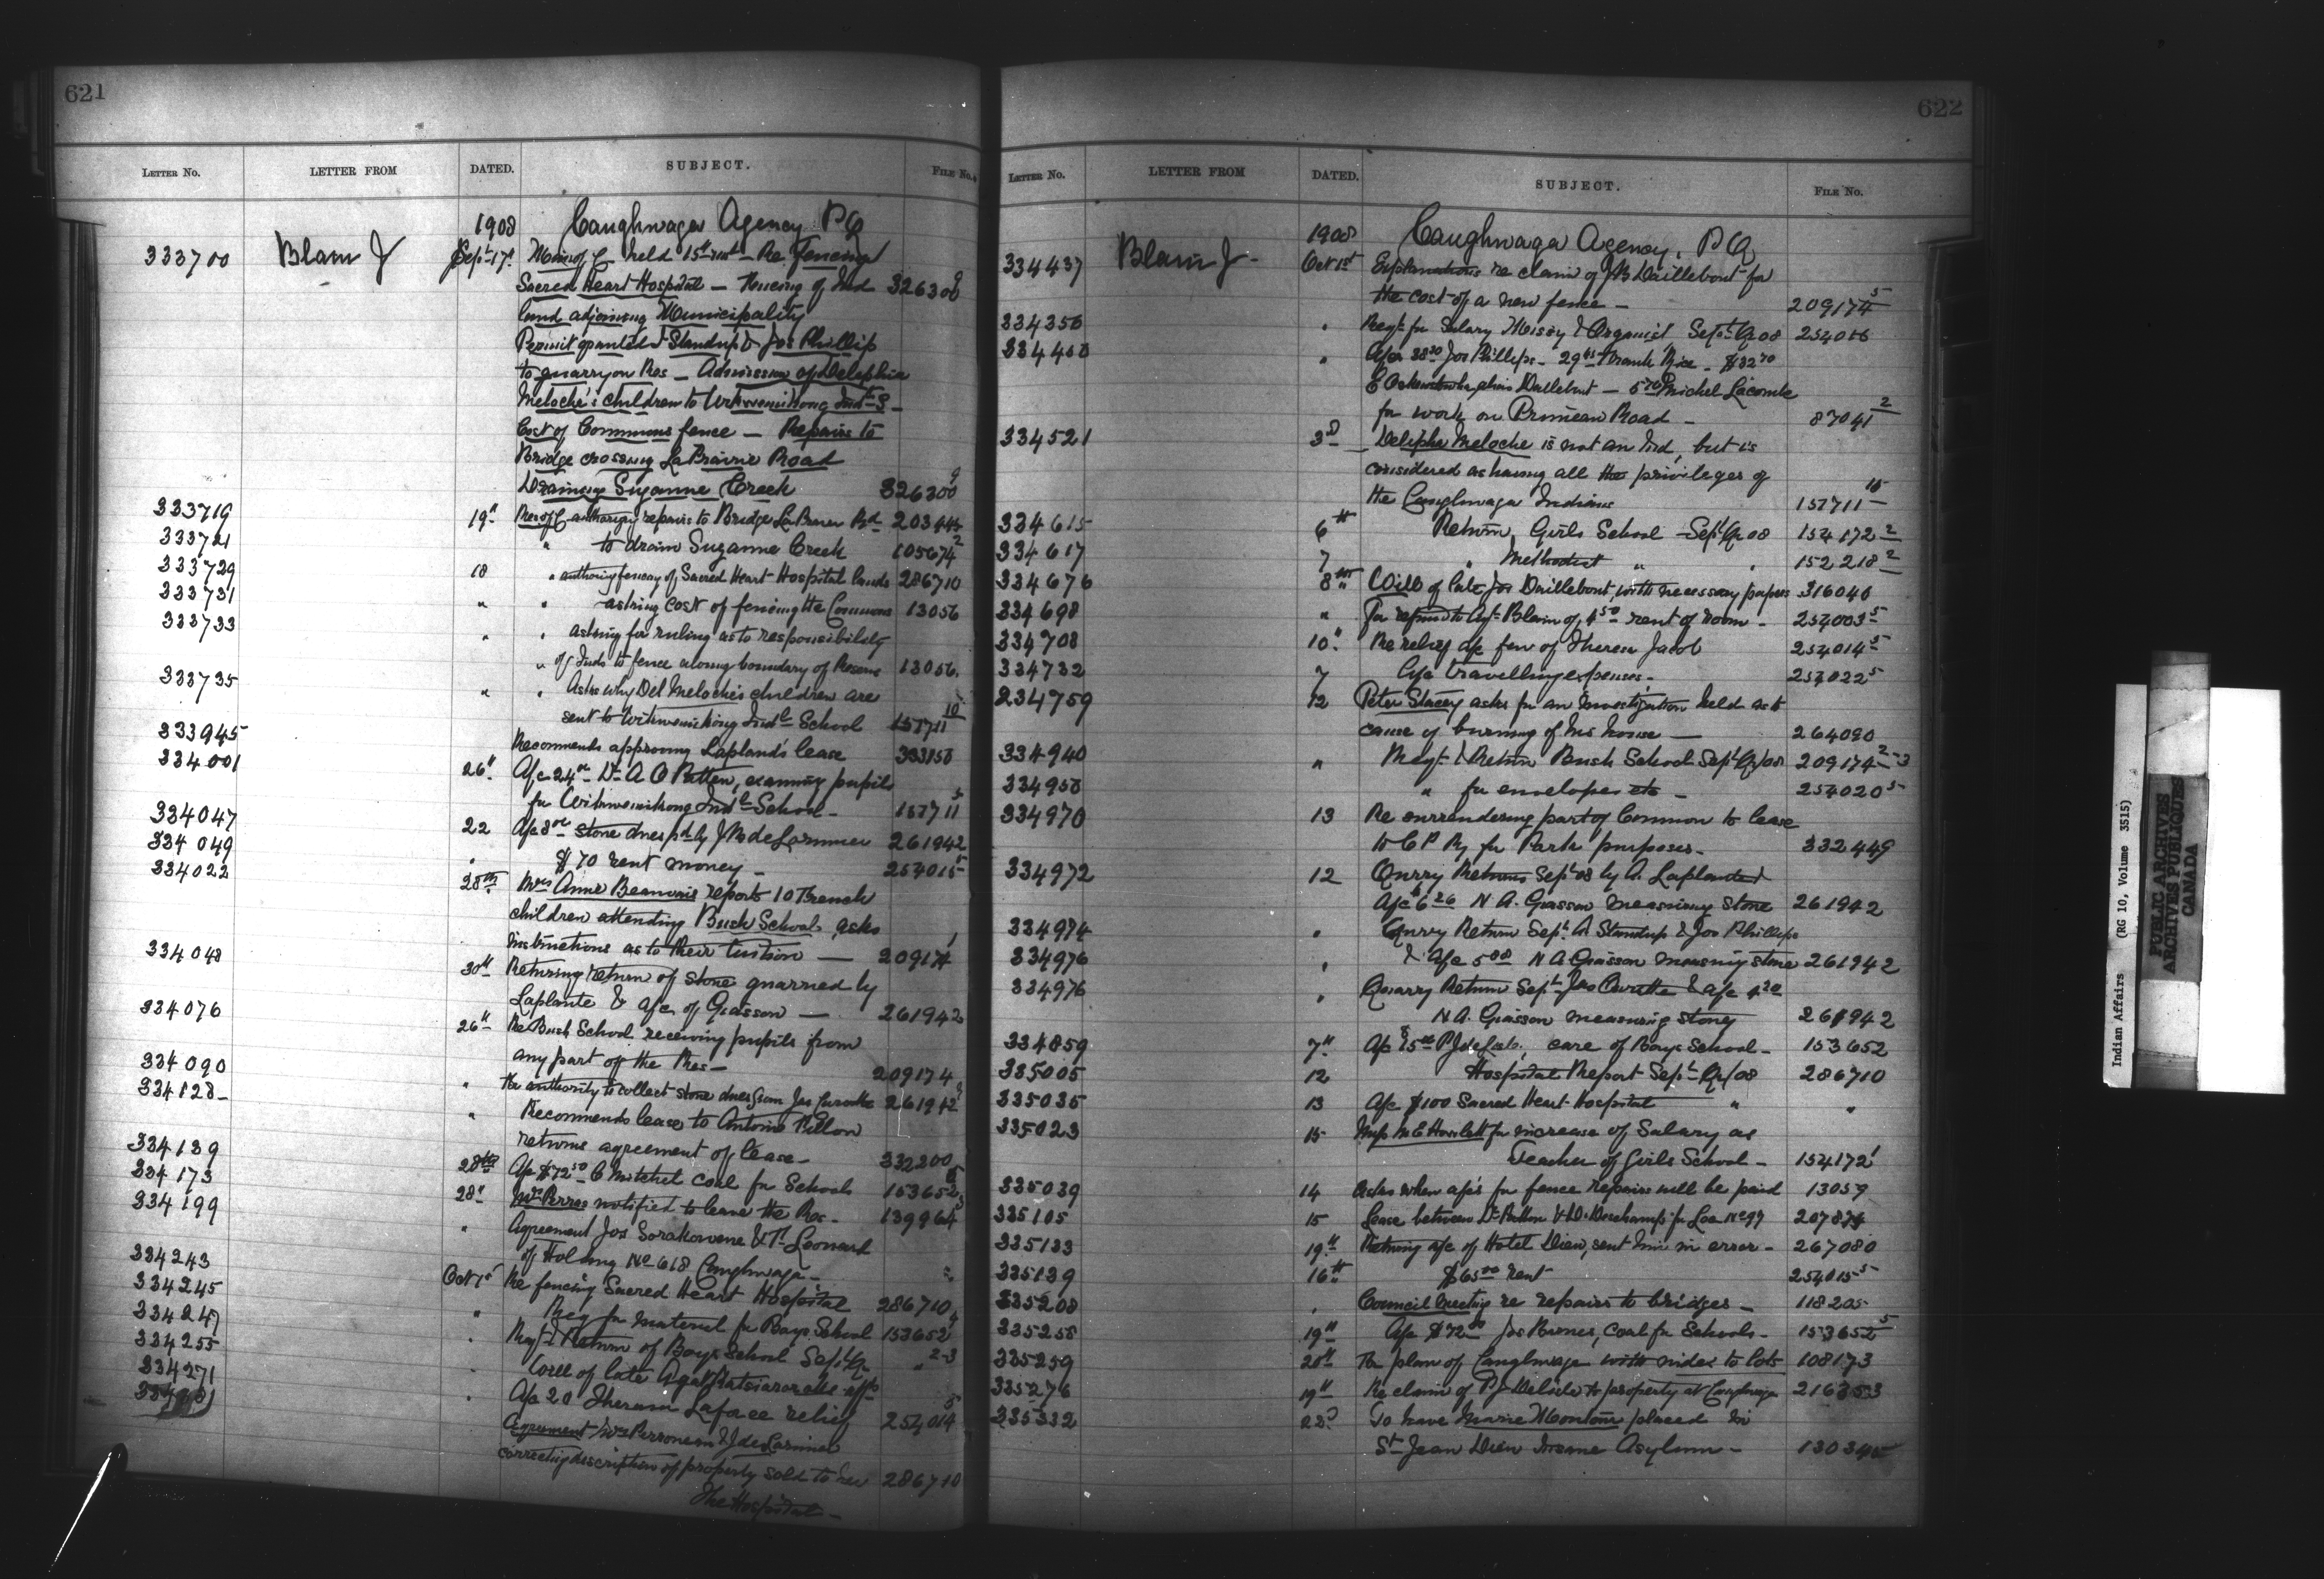 621
LETTER NO. LETTER FROM DATED. SUBJECT. FILE No.
1908 Caughnwaga Agency PQ
333700 Blain J Sept 17. Min of C held 15th inst - Re Fencing
Sacred Heart Hospital — Fencing of Ind 326300 9
land adjoining Municipality
Permit granted Standup & Jos Phillip
to quarry on Res — Admission of Delephia
Meloche's children to Wikwemikong Indl S -
Cost of Commons fence — Repairs to
Bridge crossing La Prairie Road
Drainage Suzanne Creek 326300 9
333719 19" Res of C authorizing repairs to Bridge La Prairie Rd 203445
333721 " to drain Suzanne Creek 105674 2
333729 18 " authorizing fencing of Sacred Heart Hospital lands 286710
333731 " " asking cost of fencing the Commons 13056
333733 " " asking for ruling as to responsibility
" of Inds to fence along boundary of Reserve 13056.
333735 " " Asks why Del Meloche's children are
sent to Wikwemikong Indl School 157711 10
333945 Recommends approving Laplants lease 333158
334001 26" A/c 24 00 Dr A O Patten, examining pupils
for Wikwemikong Indl School - 157711 5
334047 22 A/c 8 00 stone dues pd by J B de Lorimier 261942
334049 " $70 rent money - 254015 5
334022 28th Mrs Anne Beauvais reports 10 French
children attending Bush School, asks
instructions as to their tuition — 209174 1
334048 30th Returning return of stone quarried by
Laplante & a/c of Giasson — 261942
334076 26th Re Bush School receiving pupils from
any part of the Res - 209174
334090 " Re authority to collect stone dues from Jos 261942
334128 - " Recommends lease to Antoine Pillon
returns agreement of lease - 332200
334139 28th A/c $72 50 C Mitchel coal for Schools 153652 5
334173 28" Mrs Perras notified to leave the Res - 139964
334199 " Agreement Jos Sorakowene & T. Leonard
of Holding No 618 Caughnwaga - "
334243 Oct 1st Re fencing Sacred Heart Hospital 286710
334245 " Req for material for Boys School 153652 4
334247 . Reqt & Return of Boys School Sept Qr " 2-3
334255 - Will of late Agat
334271 . A/c 20 Theresa Laforce relief 254014 5
Agreement Mrs Perroneau & J de Lorimier
correcting description of property sold to her 286710
The Hospital -
622
LETTER NO. LETTER FROM DATED. SUBJECT. FILE No.
1908 Caughnwaga Agency, PQ
334437 Blain J - Oct 1st Explanations re claim of J B Daillebout for
the cost of a new fence - 209174 5
334356 " Reqt for Salary Missy & Organist Sept Qr 08 254016
334408 " A/cs 38 50 Jos Phillips - 29 45 Frank Rice - $32 70
alias Dallebout — 5 70 Michel Lacombe
for work on Primeau Road - 87041 2
334521 3d Deliphe Meloche is not an Ind, but is
considered as having all the privileges of
the Caughnwaga Indians 157711 10
334615 6th Return, Girls School - Sept Qr 08 154172 2
334617 7 " Methodist " . 152218 2
334676 8th Will of late Jos Daillebout, with necessary papers 316040
334698 " For refund to Agt Blain of 4 50 rent of room - 254003 5
334708 10. Re relief a/c fav of Theresa Jacob 254014 5
334732 7 A/c travelling expenses. 254022 5
334759 12 Peter Stacey asks for an investigation held as to
cause of burning of his house — 264090
334940 " Reqt & Return Bush School Sept Qr/08 209174 2-3
334958 " for envelopes etc - 254020 5
334970 13 Re surrendering part of Common to lease
to C P Ry for Park purposes - 332449
334972 12 Qurry Returns Sept 08 by A. Laplante
A/c 6 26 N A. Giasson measuring stone 261942
334974 " Qurry Return Sept. A. Standup & Jos Phillips
334976 " & A/c 5 00 N A Giasson measuring stone 261942
334976 " Quarry Return Sept. Jos & a/c 4 20
N A. Giasson measuring stone 261942
334859 7th A/c 15 00 P J delisle, care of Boys School - 153652
335005 12 Hospital Report Sept Qr/08 286710
335035 13 A/c $100 Sacred Heart Hospital " "
335023 15 Miss M E Howlett for increase of Salary as
Teacher of Girls School - 154172 1
335039 14 Asks when a/cs for fence repairs will be paid 13059
335105 15 Lease between Dr Patton & D. Deschamps for Lot No 97 207874
335133 19th Returning a/c of Hotel Dieu, sent him in error - 267080
335139 16th $65 00 rent 254015 5
335208 . Council Meeting re repairs to bridges - 118205
335258 19th A/c $72 50 Jos Barnes, coal for Schools - 153652 5
335259 20th For plan of Caughnwaga with index to lots 108173
335276 19th Re claim of P J Delisle to property at Caughnwaga 216353
335332 22d To have Marie Montour placed in
St Jean Dieu Insane Asylum - 130345
Indian Affairs (RG 10, Volume 3515)
PUBLIC ARCHIVES
ARCHIVES PUBLIQUES
CANADA